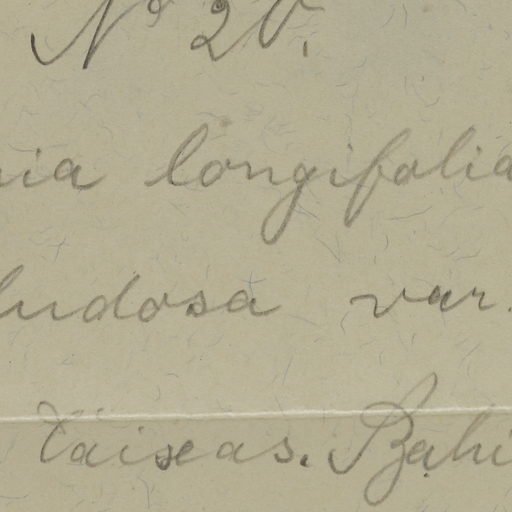 No 20.
nia longifolia
ludosa var.
Täiseas. Bahi